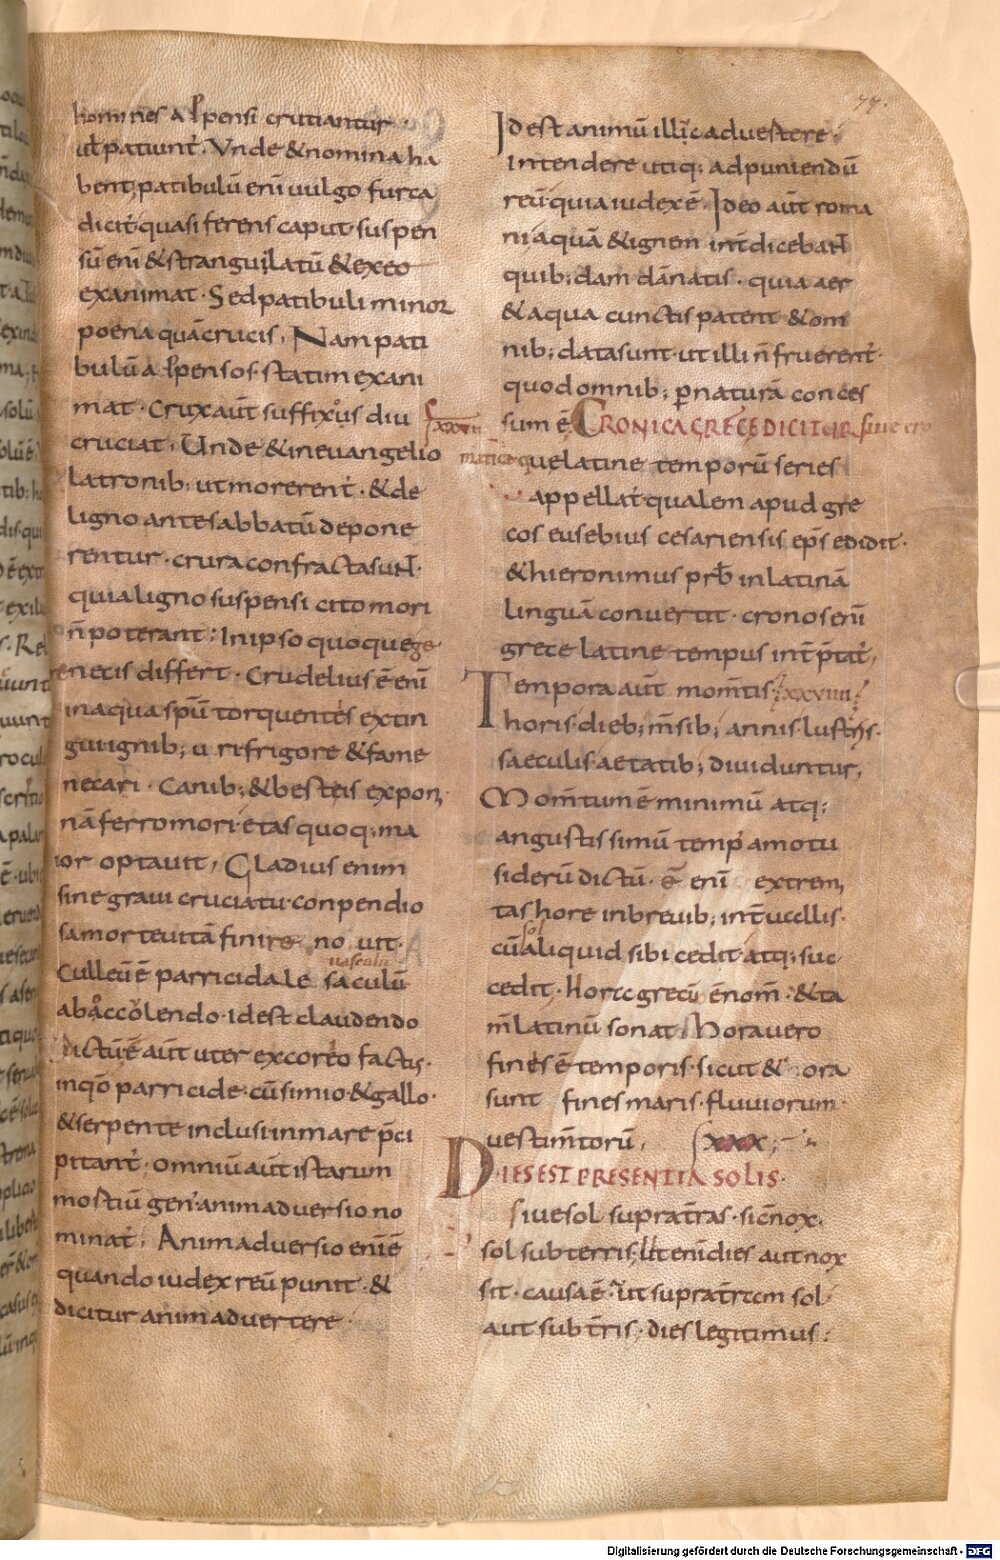 homines adpensi cruciantur
ut patiunt̄. Vnde & nomina ha
bent; patibulū enī uulgo furca
dicit̄ quasi ferens caput suspen
sū enī & strangulatū & exeo
exanimat. Sed patibuli minor
poena quā crucis. Nam pati
bulū adpensos statim exani
mat. Crux aūt suffixos diu
cruciat. Unde & in euangelio
latronib; ut morerent̄. & de
ligno ante sabbatū depone
rentur. crura confracta sunt.
quia ligno suspensi cito mori
ñ poterant; In ipso quoque ge
nere necis differt. Crudelius ē enī
in aqua spū torquentes extin
gui ignib; uri frigore & fame
necari. Canib; & bestiis expon
nā ferro mori etas quoq; ma
ior optauit, Gladius enim
sine graui cruciatu conpendio
sa morte uitā finire nouit.
uasculū
Culleū ē parricidale saculū
ab accolendo. id est claudendo
dictū ē aūt uter ex coreo factus.
in qō parricide. cū simio & gallo.
& serpente inclusi in mare p̄ci
pitant̄. omniū aūt istarum
mostiū gen' animaduersio no
minat̄. Animaduersio enī ē
quando iudex reū punit. &
dicitur animaduertere.
77.
Id est animū illic aduertere.
Intendere utiq; ad puniendū
reū quia iudex ē. Ideo aūt roma
ni aquā & ignem int̄dicebant
quib;dam dānatis. quia aer
& aqua cunctis patent & om
nib; data sunt. ut illi ñ fruerent̄.
quod omnib; p̱ naturā conces
sum ē xxxviii CRONICA GRECE DICITUR siue cro
nica que latine temporū series
appellat̄ qualem apud gre
cos eusebius cesariensis ep̄s edidit.
& hieronimus prb̄ in latinā
linguā conuertit. cronos enī
grece latine tempus int̄p̄tat̄,
Tempora aūt mom̄tis xxxviiii
horis. dieb; m̄sib; annis lustris.
saeculis aetatib; diuiduntur,
Mom̄tum ē minimū atq;
angustissimū temp' a motu
siderū dictū. ē enī extremi
tas hore in breuib; int̄uallis.
sol
cū aliquid sibi cedit. atq; suc
cedit. hore grecū ē nom̄. & ta
m̄ latinū sonat. Hora uero
fines ē temporis. sicut & ora
sunt fines maris. fluuiorum.
uestim̄torū. xxx
DIES EST PRESENTIA SOLIS.
siue sol supra t̄ras. sic̄ nox.
sol sub terris, Ut enī dies aut nox
sit. causa ē. ut supra t̄ram sol
aut sub t̄ris. dies legitimus:
Digitalisierung gefördert durch die Deutsche Forschungsgemeinschaft - DFG